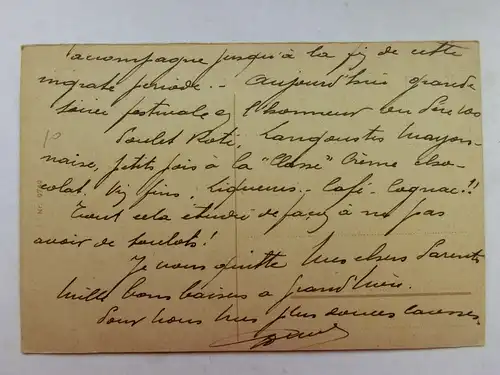 accompagne jusqu'à la fin de cette
ingrate période .. Aujourd'hui grande
soirée festivale
l'honneur
Poulet Roti, Langoustes Mayon-
naise, petits pois à la "Classe" Crème cho-
colat, Vins fins, Liqueurs .. Café - Cognac !!
Tout cela étudié de façon à ne pas
avoir de soulots !
Je vous quitte Mes chers Parents
Mille bons baisers à grand'mère.
Pour vous mes plus douces caresses.